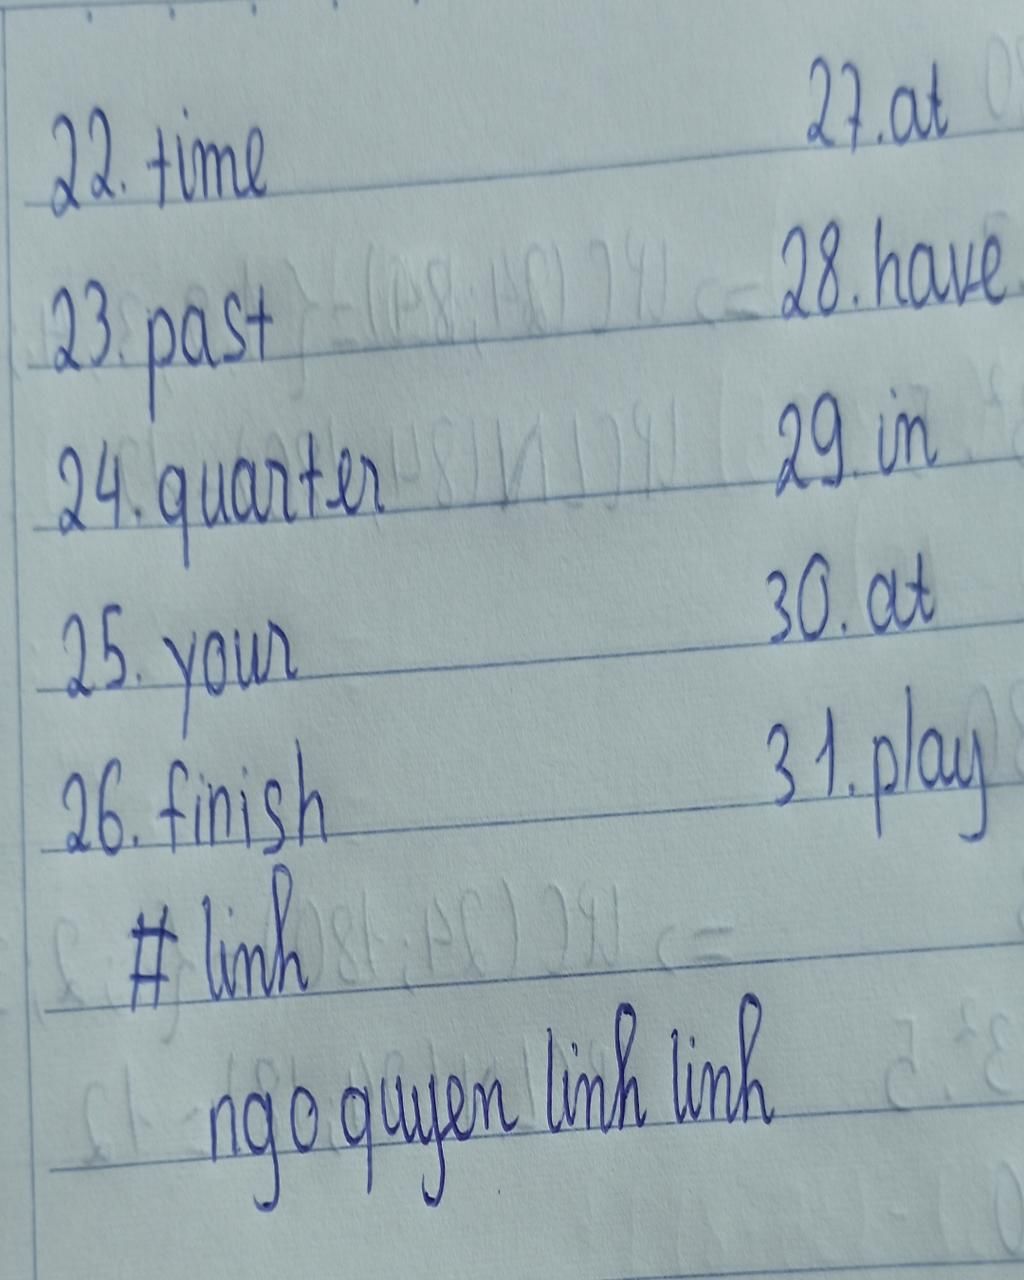 22. time
23. past
24. quarter
25. your
26. finish
27. at
28. have
29. in
30. at
31. play
# linh
ngo quyen linh linh